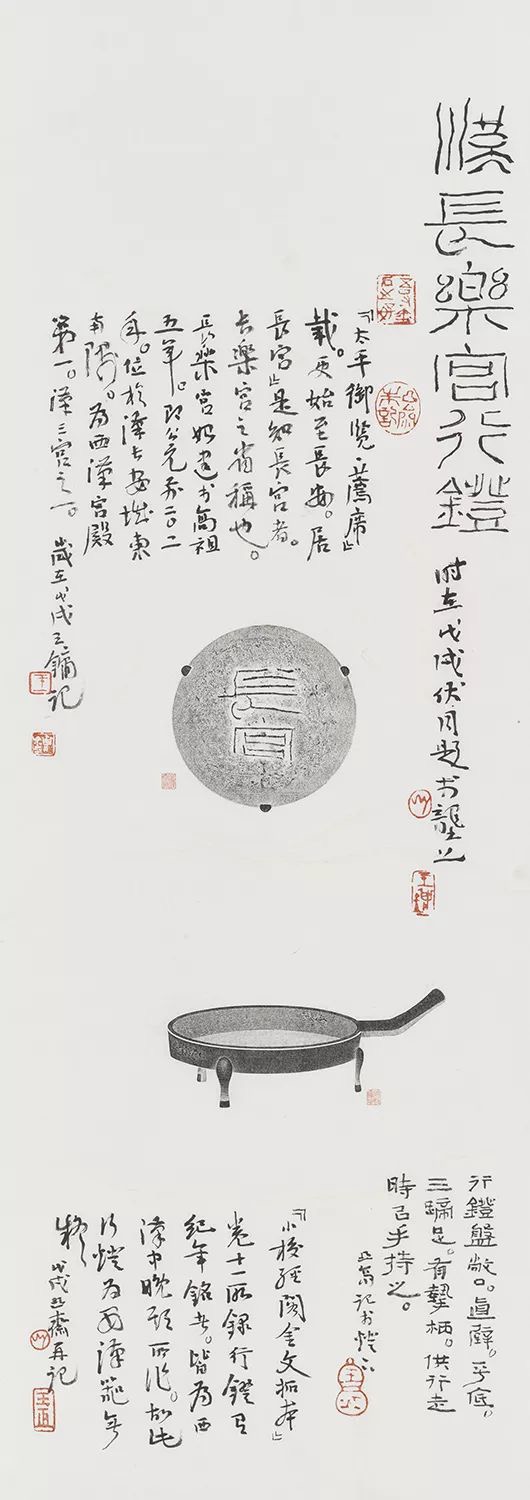 漢長樂宮行鐙
時在戊戌伏月題於
『太平御覽·薦席』
載。更始至長安。居
長宮』是知長宮者。
長樂宮之省稱也。
長樂宮始建於高祖
五年。即公元前二〇二
年。位於漢長安城東
南隅。為西漢宮殿
第一。漢三宮之一。歲在戊戌 記
長宮
行鐙盤敞口。直壁。平底。
三蹄足。有鋬柄。供行走
時以手持之。
記於燈下
『小校經閣金文拓本』
卷十一所錄行鐙有
紀年銘者。皆為西
漢中晚期所作。故此
行燈為西漢器無
疑 戊戌亞齋再記